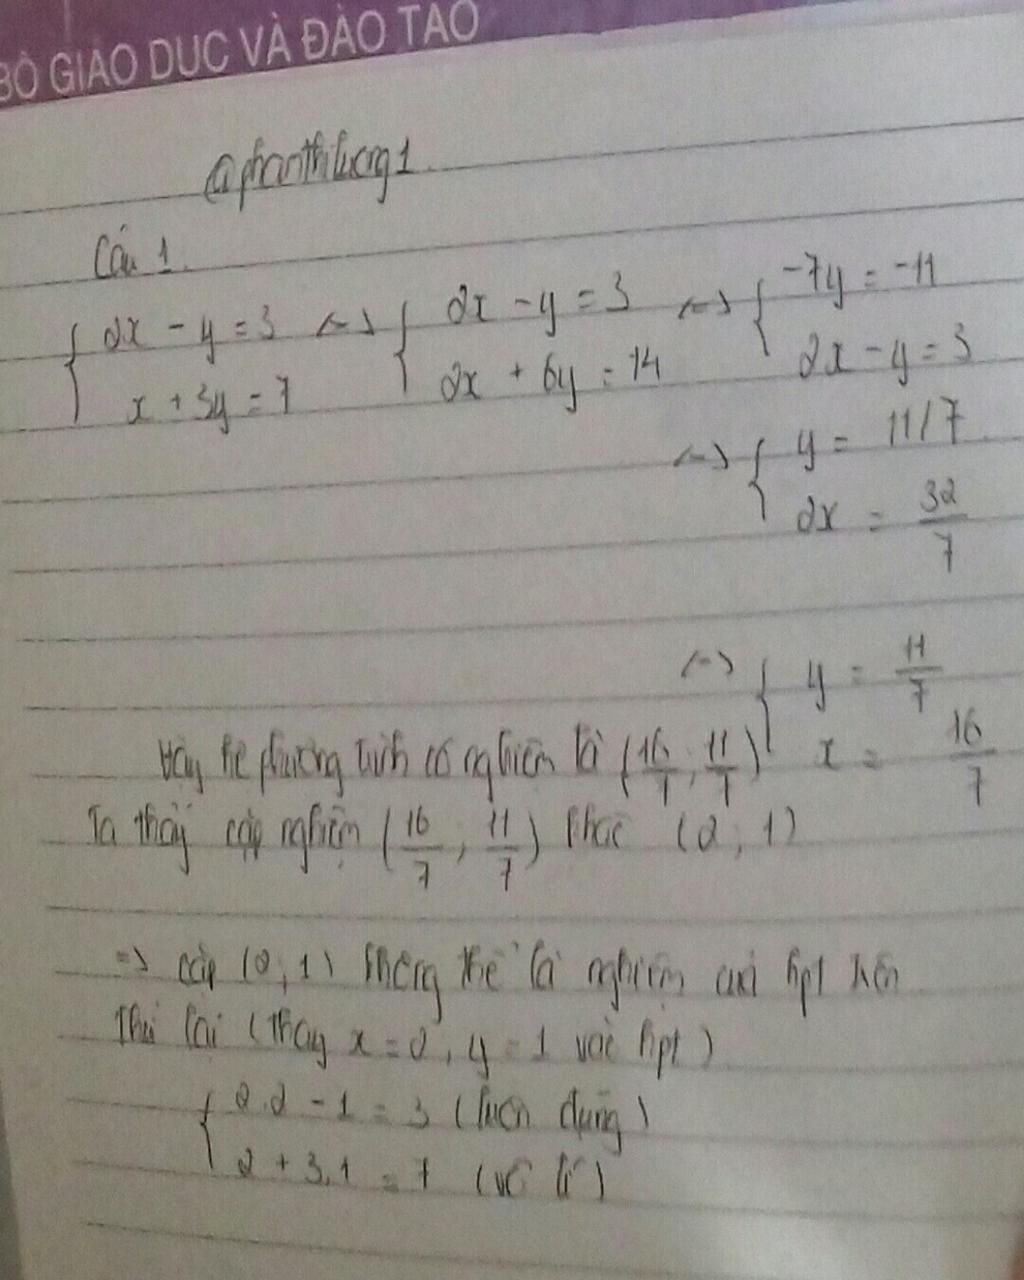 BỘ GIÁO DỤC VÀ ĐÀO TẠO
@phanthiluong1.
Câu 1.
{ 2x - y = 3 <-> { 2x - y = 3 <-> { -7y = -11
x + 3y = 7 2x + 6y = 14 2x - y = 3
<-> { y = 11/7
2x = 32/7
<-> { y = 11/7
x = 16/7
Vậy hệ phương trình có nghiệm là (16/7, 11/7)
Ta thấy cặp nghiệm (16/7, 11/7) khác (2, 1)
=> cặp (2, 1) không thể là nghiệm của hpt trên
Thử lại (thay x = 2, y = 1 vào hpt)
{ 2.2 - 1 = 3 (luôn đúng)
2 + 3.1 = 7 (vô lí)